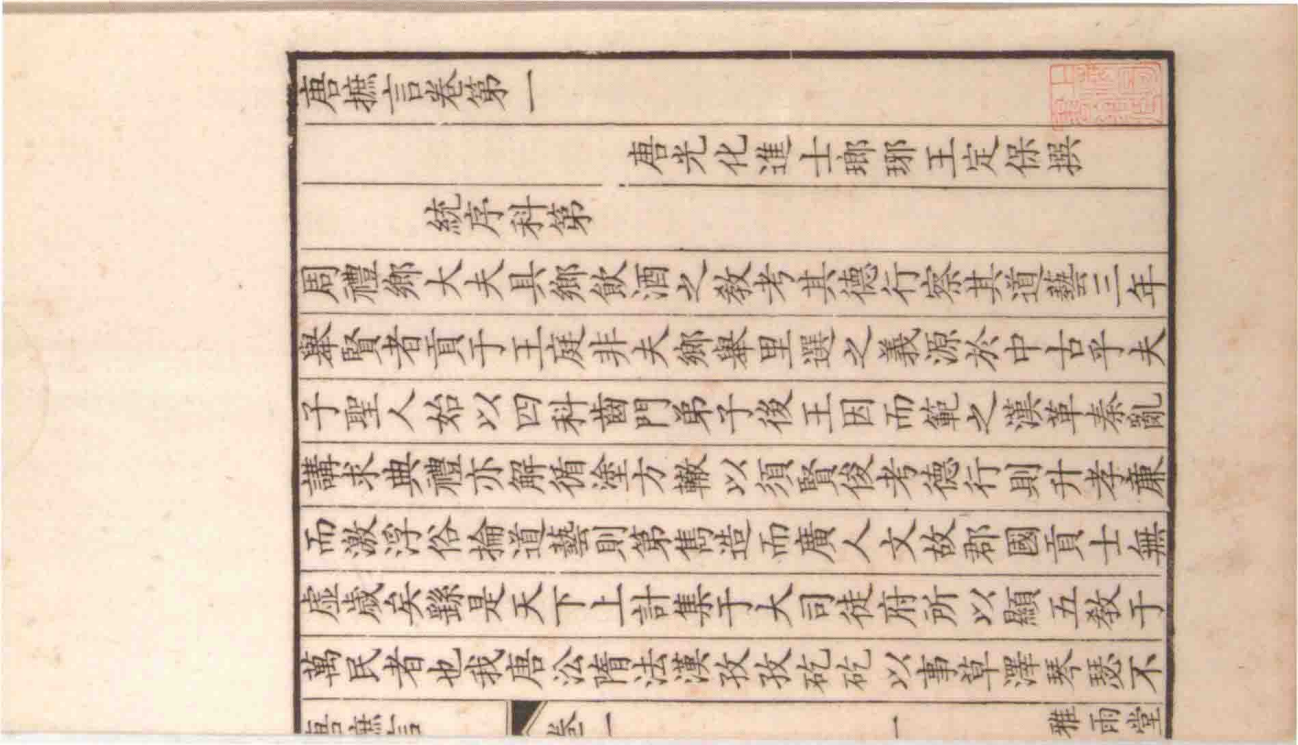 唐摭言卷第一
唐光化進士瑯琊王定保撰
統序科第
周禮鄉大夫具鄉飲酒之敎考其德行察其道藝三年
舉賢者貢于王庭非夫鄉舉里選之義源於中古乎夫
子聖人始以四科齒門弟子後王因而範之漢革秦亂
講求典禮亦解循塗方轍以須賢俊考德行則升孝廉
而激浮俗掄道藝則第雋造而廣人文故郡國貢士無
虛歲矣繇是天下上計集于大司徒府所以顯五敎于
萬民者也我唐㳂隋法漢孜孜矻矻以事草澤琴瑟不
唐摭言 卷一 一 雅雨堂